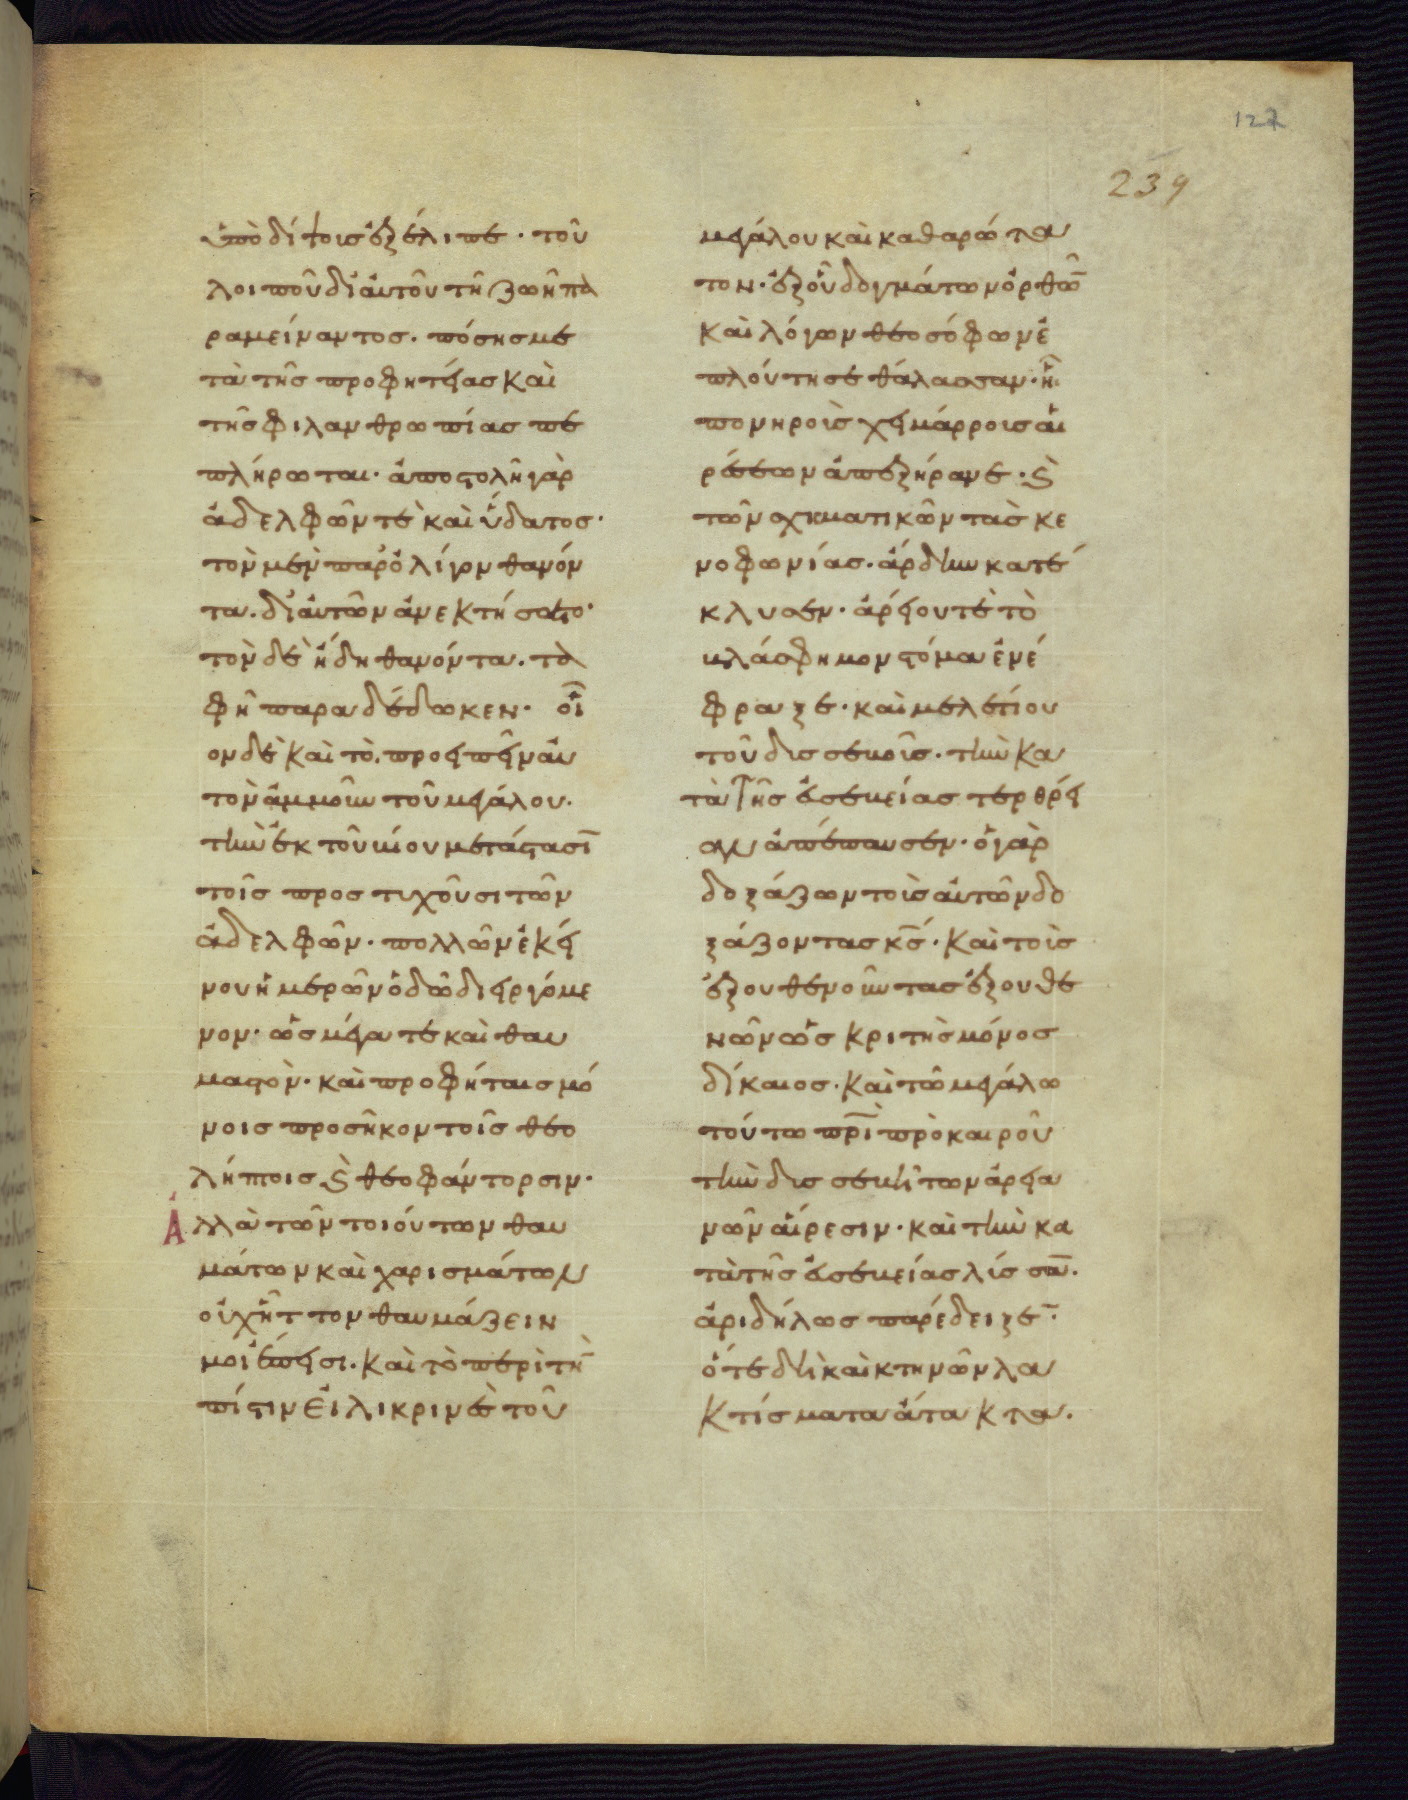 127
239
ὑπὸ δίψοις ἐξέλιπε· τοῦ
λοιποῦ δι᾽ αὐτοῦ τῆ ζωῆ πα
ραμείναντος. πόσης με
τὰ τῆς προφητείας καὶ
τῆς φιλανθρωπίας πε
πλήρωται· ἀποστολῆ γὰρ
ἀδελφῶν τὲ καὶ ὕδατος·
τὸν μὲν παρ᾽ ὀλίγον θανόν
τα. δι᾽ αὐτῶν ἀνεκτήσατο·
τὸν δὲ ἤδη θανόντα. τα
φῆ παραδέδωκεν· οἷ
ον δὲ καὶ τὸ. προσειπεῖν αὐ
τὸν ἀμμοῦν τοῦ μεγάλου.
τὴν ἐκ τοῦ βίου μετάστασῑ
τοῖς προστυχοῦσι τῶν
ἀδελφῶν· πολλῶν ἐκεί
νου ἡμερῶν ὁδῶ διειργόμε
νον· ὡς μέγα τε καὶ θαυ
μαστὸν· καὶ προφήταις μό
νοις προσῆκον τοῖς θεο
λήπτοις ϗ θεοφάντορσιν·
Ἀλλὰ τῶν τοιούτων θαυ
μάτων καὶ χαρισμάτων
οὐχ ἧττον θαυμάζειν
μοι ἔπεισι. καὶ τὸ περὶ τὴ̄
πίστιν εἰλικρινὲς τοῦ
μεγάλου καὶ καθαρώτα
τον· ἐξ οὗ δογμάτων ὀρθῶ̄
καὶ λόγων θεοσόφων ἐ
πλούτησε θάλασσαν· ἣ
πονηροῖς χειμάρροις αἱ
ρέσεων ἀπεξήρανε· ϗ
τῶν σχισματικῶν τὰς κε
νοφωνίας. ἄρδην κατέ
κλυσεν· ἀρείου τὲ τὸ
βλάσφημον στόμα ἐνέ
φραξε· καὶ μελετίου
τοῦ δυσσεβοῦς. τὴν κα
τὰ τῆς εὐσεβείας τερθρεί
αν ἀπέπαυσεν· ὁ γὰρ
δοξάζων τοὺς αὐτὸν δο
ξάζοντας κ̄ς̄· καὶ τοὺς
ἐξουθενοῦντας ἐξουθε
νῶν ὡς κριτὴς μόνος
δίκαιος· καὶ τῶ μεγάλω
τούτω π̄ρ̄ῑ πρὸ καιροῦ
τὴν δυσσεβῆ τῶν ἀρεια
νῶν αἵρεσιν· καὶ τὴν κα
τὰ τῆς εὐσεβείας λύσσᾱ.
ἀριδήλως παρέδειξε·
ὅτε δὴ καὶ κτηνῶν λα
κτίσματα ἄτακτα.